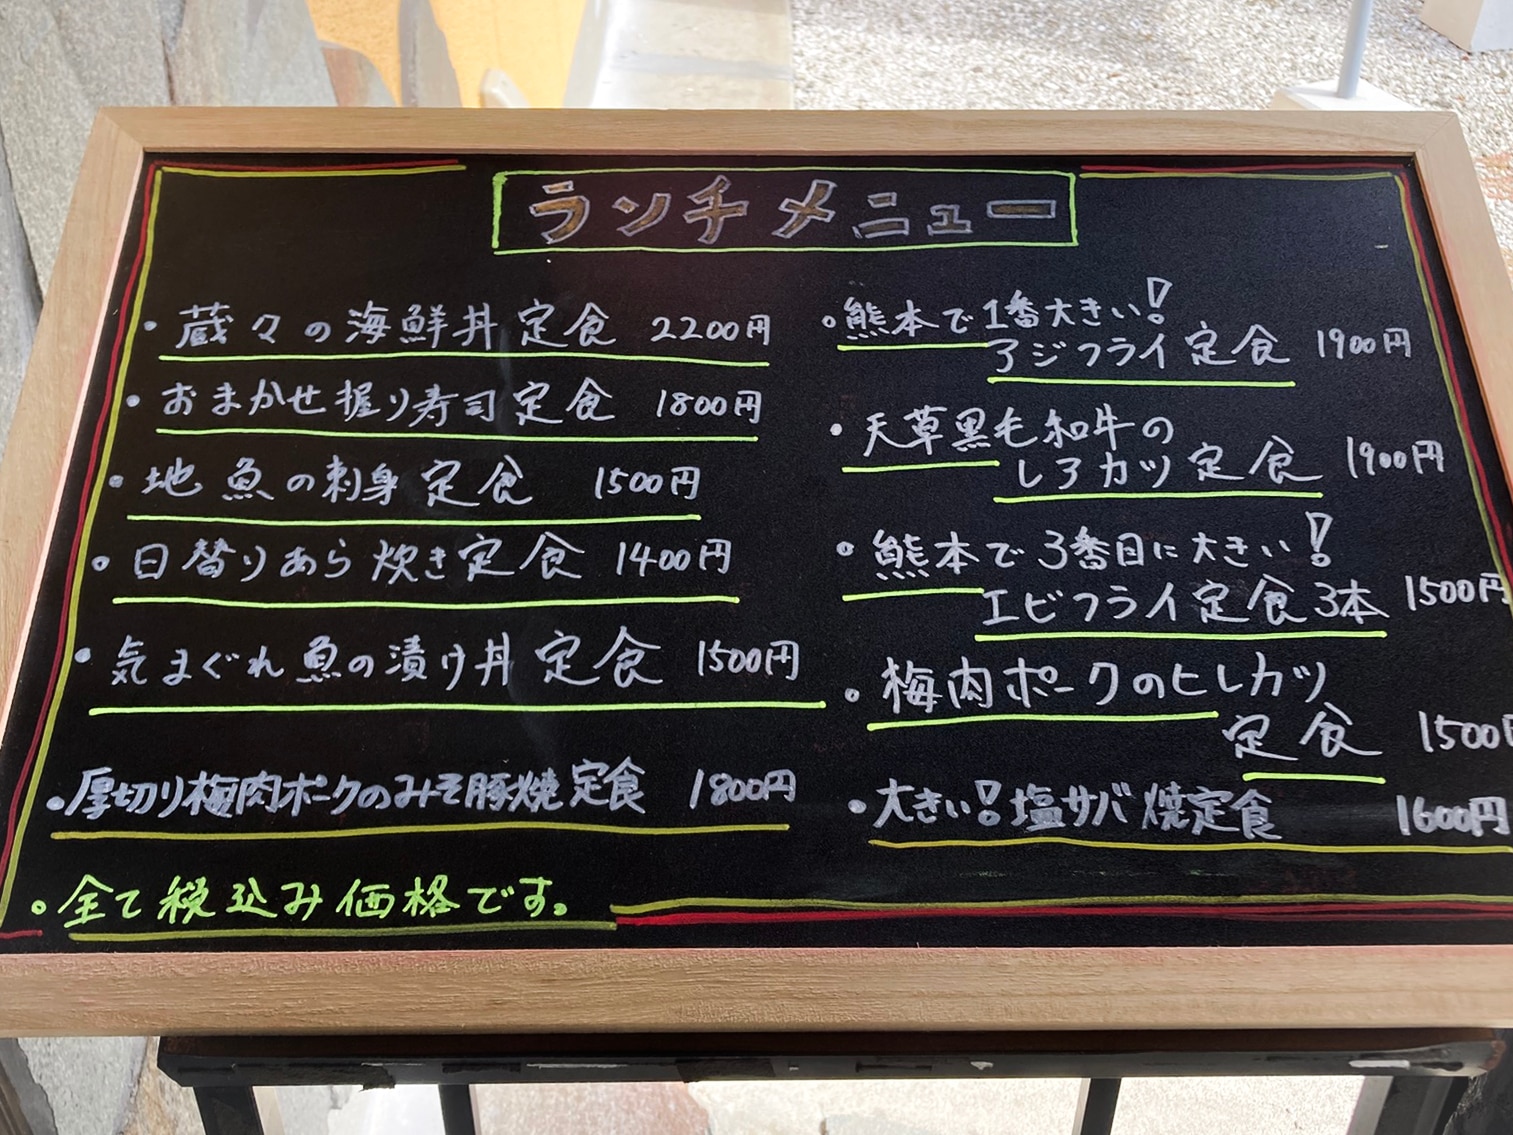 ランチメニュー
・蔵々の海鮮丼定食 2200円
・おまかせ握り寿司定食 1800円
・地魚の刺身定食 1500円
・日替りあら炊き定食 1400円
・気まぐれ魚の漬け丼定食 1500円
・厚切り梅肉ポークのみそ豚焼定食 1800円
・全て税込み価格です。
・熊本で1番大きい!
アジフライ定食 1900円
・天草黒毛和牛の
レアカツ定食 1900円
・熊本で3番目に大きい!
エビフライ定食3本 1500円
・梅肉ポークのヒレカツ
定食 1500円
・大きい!塩サバ焼定食 1600円